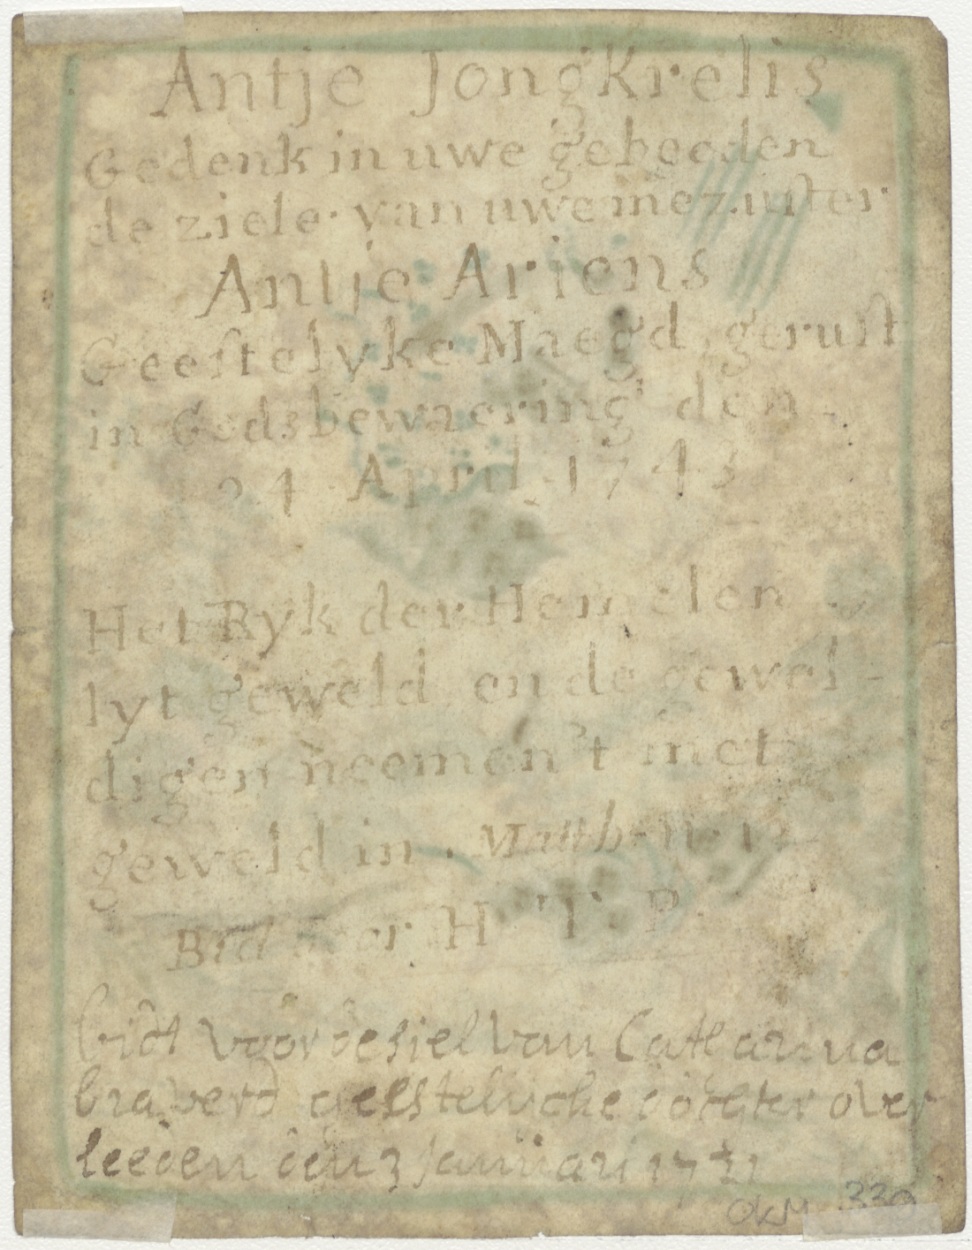 Antje JongKrelis
Gedenk in uwe gebeeden
de ziele van uwe mezuster
Antje Ariens
Geestelyke Maegd, gerust
in Gods bewaering den
24 April 1743
Het Ryk der Hemelen
lyt geweld, en de gewel-
digen neemen 't met
geweld in. Matth.
Bid voor H. T. P.
bidt voor de siel van Catharina
braverd geestelijcke dochter over
leeden den 3 januari 17
OKM 339